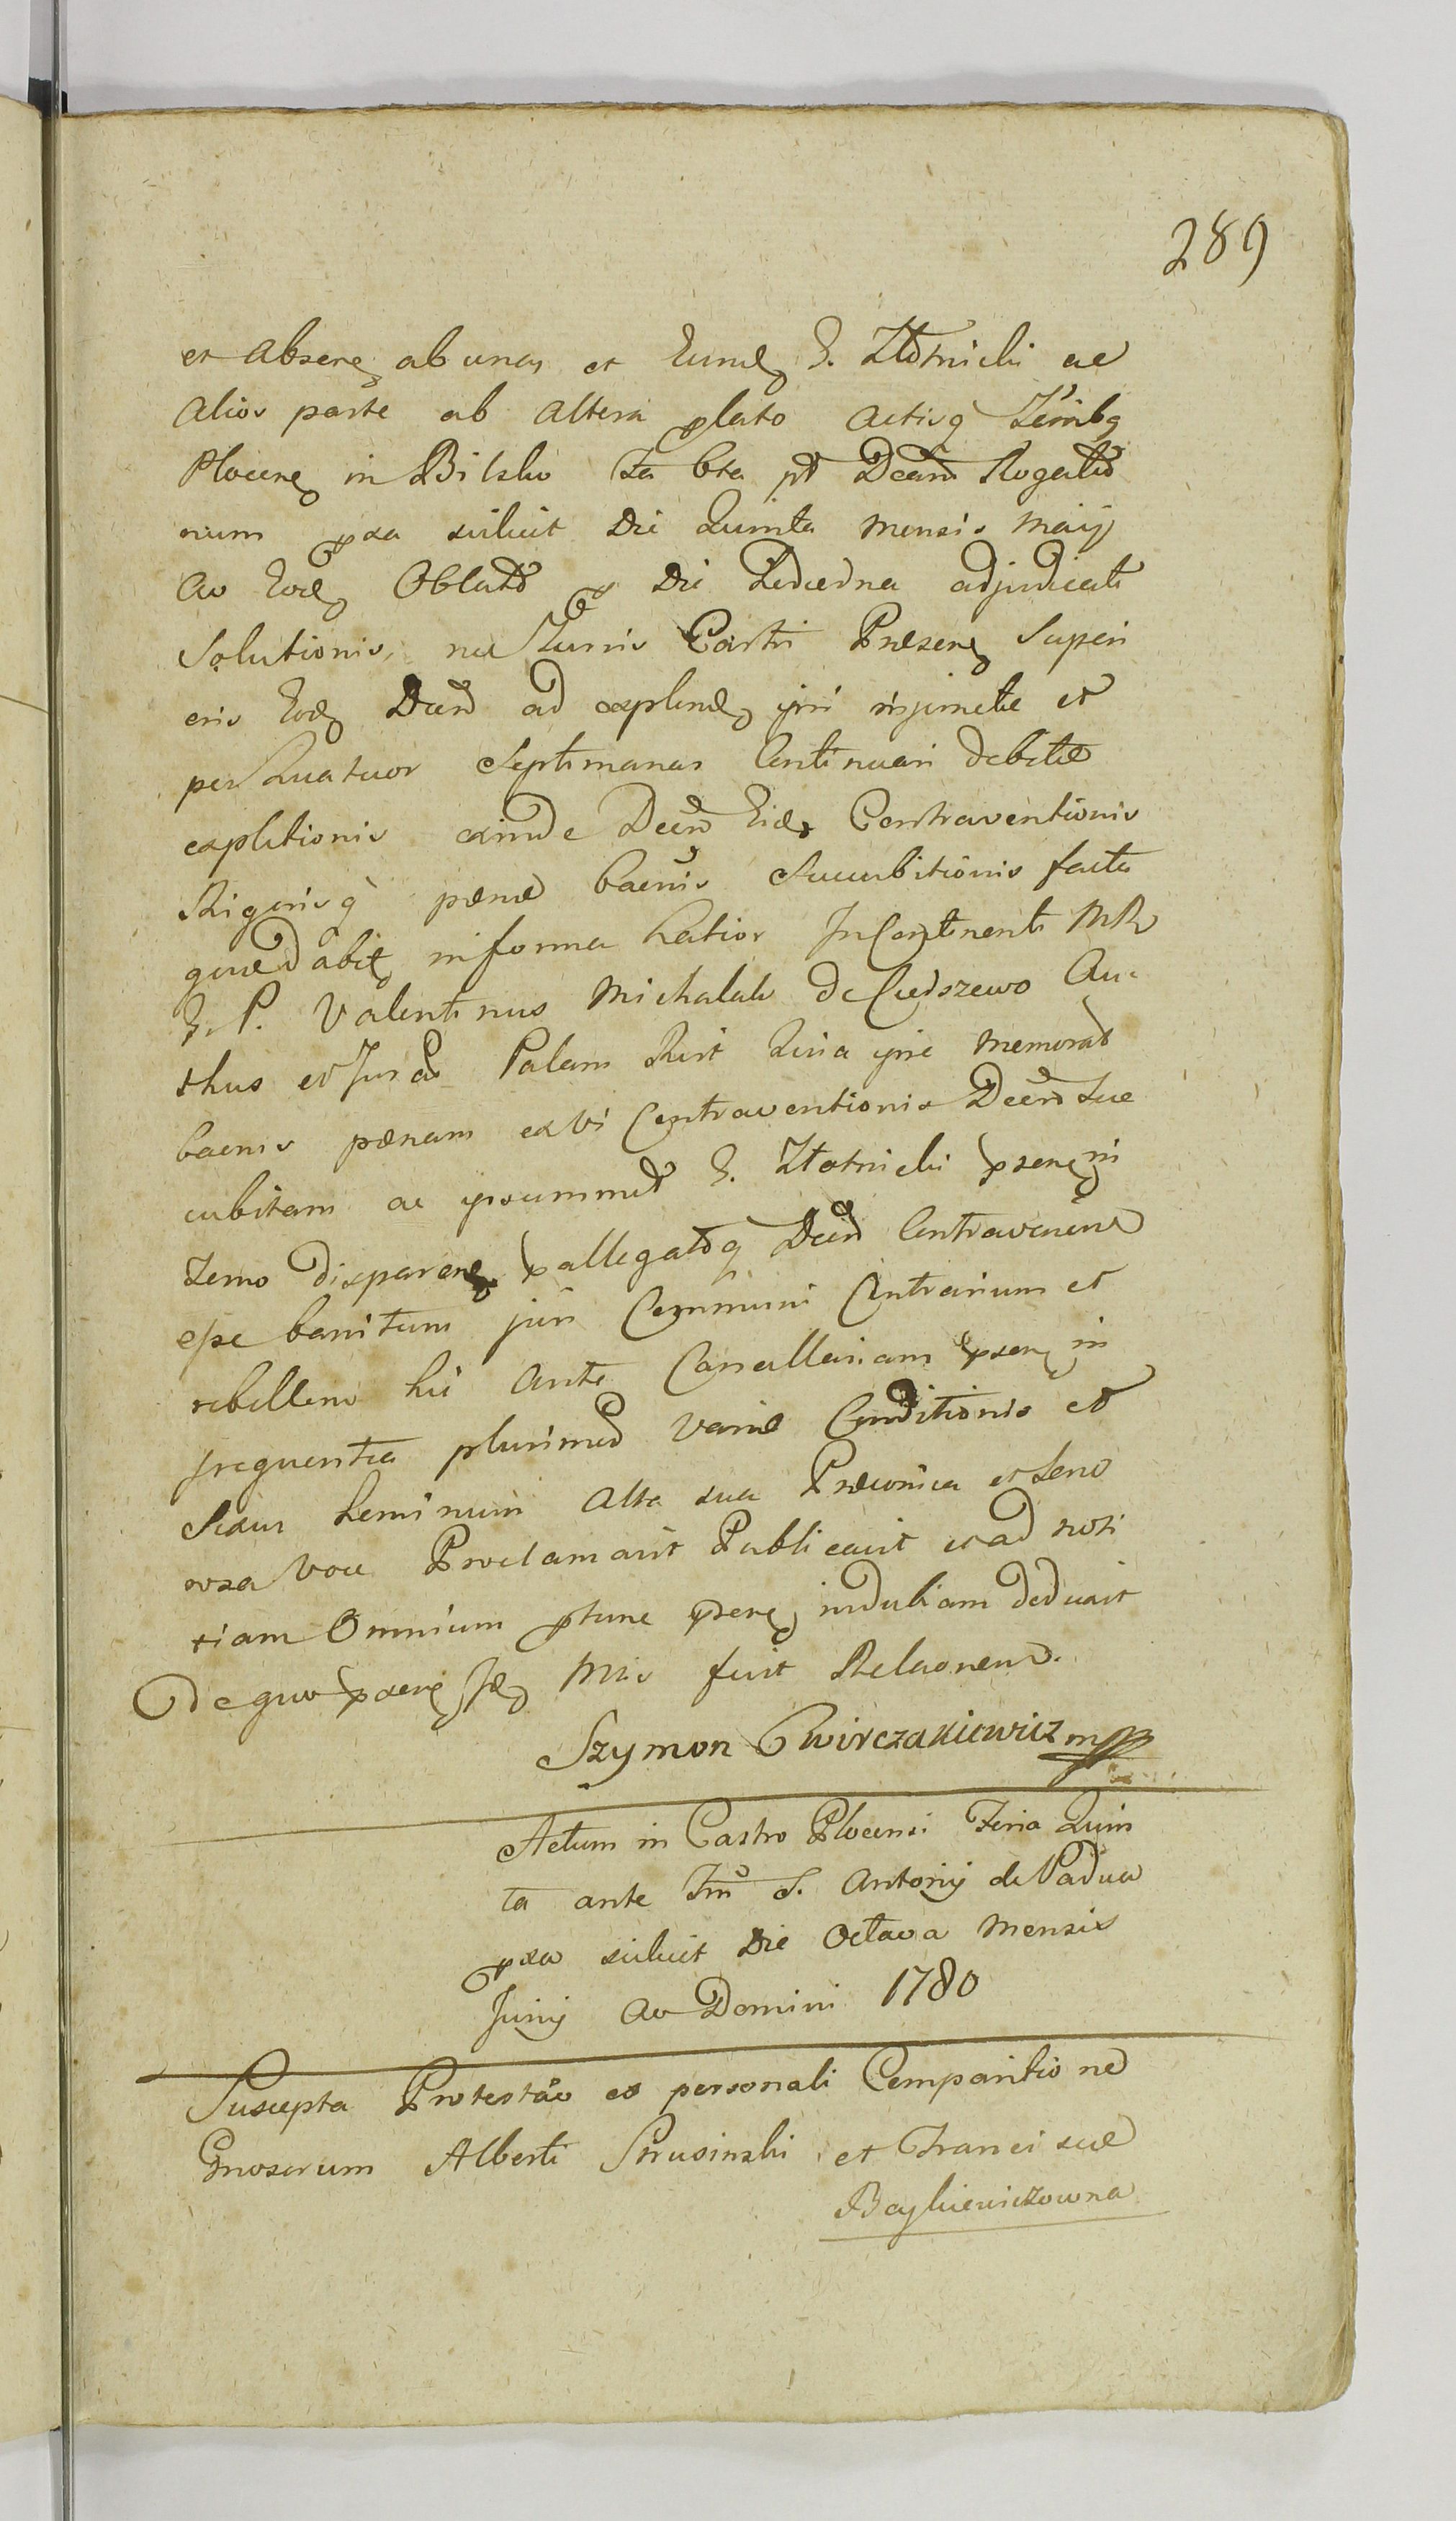 289
et Absene ab una, et Eund G. Złotnicki ac
Alios parte ab Altera plato Actisq Terribg
Plocene in Bilsko Ia bta pt Decum Rogatio
num pxa scilicet Die Quinta Mensis Maij
Ao Eod Oblato Die adjudicati
Solutionis, nec Turris Castri Præsene Superi
oris Eod Decti ad explend ipsi injuncte et
per Quatuor Septimanas Continuari debitæ
expletionis exinde Decti Eid Contraventionis
Rigorisq pænæ banis Sucubitionis facta
quæd abit in forma latior In Continenti MR
G. P. Valentinus Michalak de Ciedszewo Au-
thus et Jurat Palam Rert Quia ipse memorat
banis pænam ex vi Contraventionis Decti Suc
cubitam ac ipsummet G. Złotnicki psene in
Termo disparene pallegatoq Decti Contravenine
esse banitum juri Communi Contrarium et
rebellem hic Ante Cancellariam psene in
frequentia plurimæ variæ Conditionis et
Sexus hominum Alta sua Præconica et Sono
rosa voce Proclamavit Publicavit et ad noti
tiam Omnium ptunc psene indubiam deduxit
De quo psene Mris fecit Relaonem.
Szymon Cwirczakiewicz mpp
Actum in Castro Plocensi Feria Quin
ta ante Fm S. Antonij de Padua
pxa scilicet Die Octava Mensis
Junij Ao Domini 1780
Suscepta Protestao ex personali Comparitione
Gnosorum Alberti Strusinski et Francisce
Baykiewiczowna